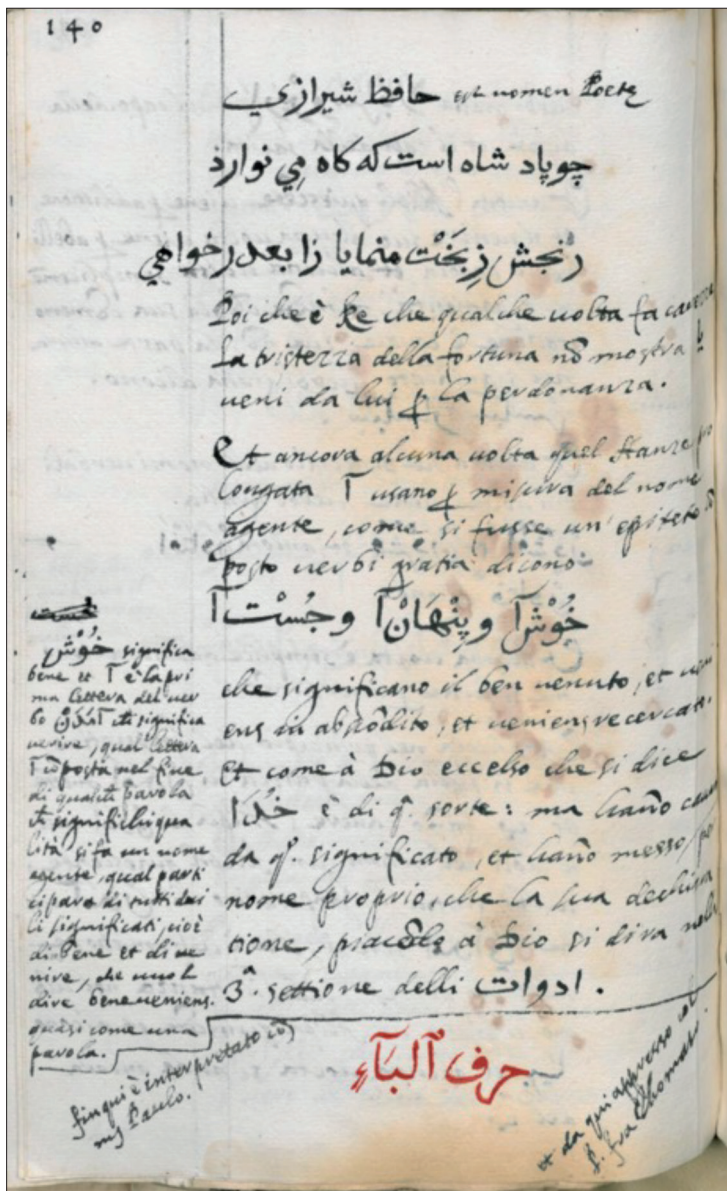 140
حافظ شيرازي est nomen Poetę
چو پاد شاه است که کاه مِي نوارذ
رنجش زِبَخْت منمايا زا بعد رخواهي
Poi che è Re che qualche uolta fa
La tristezza della fortuna nō mostra
ueni da lui ꝑ la perdonanza.
Et ancora alcuna uolta quel stanze
longata آ usano ꝑ misura del nome
agente, come si fusse un' epiteto
posto uerbi gratia dicono
خُوْش آ و پِنْهَانْ آ و جُسْت آ
che significano il ben uenuto, et
ens in abscōdito, et ueniens recercato.
et come à Dio eccelso che si dice
خُدَا è di q. sorte: ma hanō
da q. significato, et hanō messo
nome proprio, che la sua dechiara
tione, à Dio si dira nella
3ª. settione delli ادوات.
خُوْش significa
bene et آ è la pri
ma lettera del uer
bo che significa
uenire, qual lettera
آ posta nel fine
di parola
che significhi qua
lità si fa un nome
agente, qual parti
cipara di tutti dui
li significati, cioè
di bene et di ue
nire, che uuol
dire beneueniens.
quasi come una
parola.
حرف آلبآءِ
finqui è interpretato
Paulo.
et da qui appresso
f. fra Thomaso.